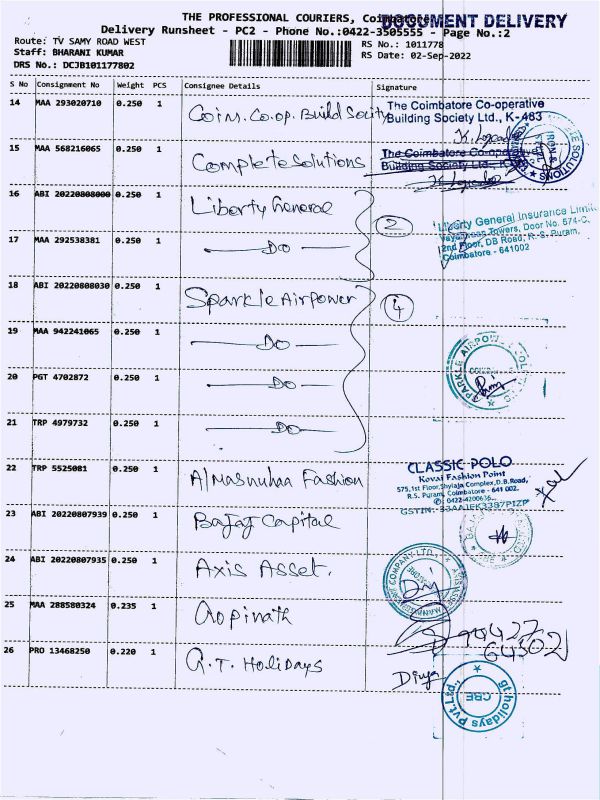 THE PROFESSIONAL COURIERS, Coimbatore
DOCUMENT DELIVERY
Delivery Runsheet - PC2 - Phone No.:0422-3505555 - Page No.:2
Route: TV SAMY ROAD WEST
RS No.: 1011778
Staff: BHARANI KUMAR
RS Date: 02-Sep-2022
DRS No.: DCJB101177802
S No Consignment No Weight PCS Consignee Details Signature
14 MAA 293020710 0.250 1 Coim. Co.op. Build Socity
The Coimbatore Co-operative
Building Society Ltd., K-463
15 MAA 568216065 0.250 1 Complete Solutions
The Coimbatore Co-operative
Building Society Ltd., K-
16 ABI 20220808000 0.250 1 Liberty General
2
Liberty General Insurance Limit
Towers, Door No. 574-C,
2nd Floor, DB Road, R. S. Puram,
Coimbatore - 641002
17 MAA 292538381 0.250 1 — Do —
18 ABI 20220808030 0.250 1 Sparkle Airpower
4
19 MAA 942241065 0.250 1 — Do —
SPARKLE AIRPOWER
20 PGT 4702872 0.250 1 — Do —
21 TRP 4979732 0.250 1 — Do —
22 TRP 5525081 0.250 1 Almasnuhaa Fashion
CLASSIC POLO
Kovai Fashion Point
575,1st Floor,Shylaja Complex,D.B.Road,
R.S. Puram, Coimbatore - 641 002.
23 ABI 20220807939 0.250 1 Bajaj Capital
24 ABI 20220807935 0.250 1 Axis Asset.
25 MAA 288580324 0.235 1 Gopinath
90427
64302
26 PRO 13468250 0.220 1 G.T. Holidays
Divya
gt holidays Pvt.Ltd.,
CBE